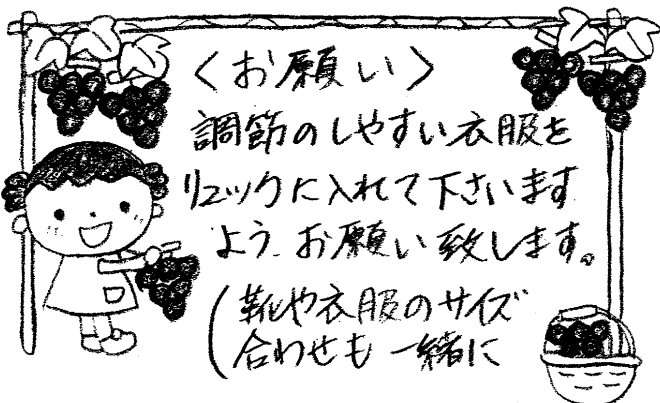 〈お願い〉
調節のしやすい衣服を
リュックに入れて下さいます
よう、お願い致します。
(靴や衣服のサイズ
合わせも一緒に